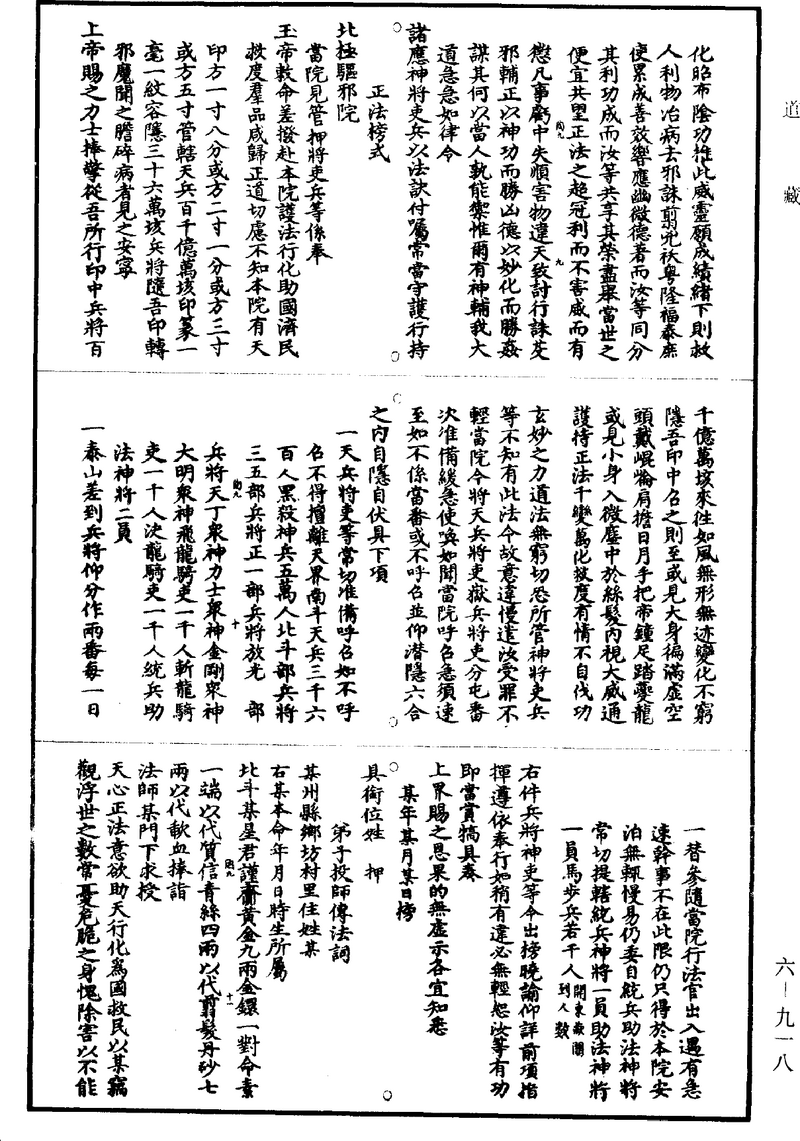 道藏
化昭布陰功推此威靈願成績緒下則救
人利物治病去邪誅翦兇祅粵隆福泰庶
使累成善效響應幽微德著而汝等同分
其利功成而汝等共享其榮盡舉當世之
便宜共墾正法之超冠利而不害威而有
愆凡事虧中失順害物違天致討行誅芟
邪輔正以神功而勝凶德以妙化而勝姦
謀其何以當人孰能禦惟爾有神輔我大
道急急如律令
諸應神將吏兵以法訣付囑常當守護行持
正法榜式
北極驅邪院
當院見管押將吏兵等係奉
玉帝敕命差撥赴本院護法行化助國濟民
救度羣品咸歸正道切慮不知本院有天
印方一寸八分或方二寸一分或方三寸
或方五寸管轄天兵百千億萬垓印篆一
毫一紋容隱三十六萬垓兵將隨吾印轉
邪魔聞之膽碎病者見之安寧
上帝賜之力士捧擎從吾所行印中兵將百
千億萬垓來往如風無形無迹變化不窮
隱吾印中召之則至或見大身徧滿虛空
頭戴崐崘肩擔日月手把帝鐘足踏夔龍
或見小身入微塵中於絲髮內視大威通
護持正法千變萬化救度有情不自伐功
玄妙之力道法無窮切恐所管神將吏兵
等不知有此法令故意違慢遣汝受罪不
輕當院令將天兵將吏嶽兵將吏分屯番
次准備緩急使喚如聞當院呼召急須速
至如不係當番或不呼召並仰潛隱六合
之內自隱自伏具下項
一天兵將吏等常切准備呼召如不呼
召不得擅離天界南斗天兵三千六
百人黑殺神兵五萬人北斗部兵將
三五部兵將正一部兵將放光 部
兵將天丁衆神力士衆神金剛衆神
大明衆神飛龍騎吏一千人斬龍騎
吏一千人決龍騎吏一千人統兵助
法神將二員
一泰山差到兵將仰分作兩番每一日
一替參隨當院行法官出入遇有急
速幹事不在此限仍只得於本院安
泊無輒慢易仍委自統兵助法神將
常切提轄統兵神將一員助法神將
一員馬步兵若干人開東嶽關到人數
右件兵將神吏等今出榜曉諭仰詳前項指
揮遵依奉行如稍有違必無輕恕汝等有功
即當賞犒具奏
上界賜之恩果的無虛示各宜知悉
某年某月某日榜
具銜位姓 押
弟子投師傳法詞
某州縣鄉坊村里住姓某
右某本命年月日時生所屬
北斗某星君謹齎黃金九兩金鐶一對命素
一端以代質信青絲四兩以代翦髮丹砂七
兩以代歃血捧詣
法師某門下求授
天心正法意欲助天行化爲國救民以某竊
觀浮世之數常憂危脆之身愧除害以不能
六－九一八